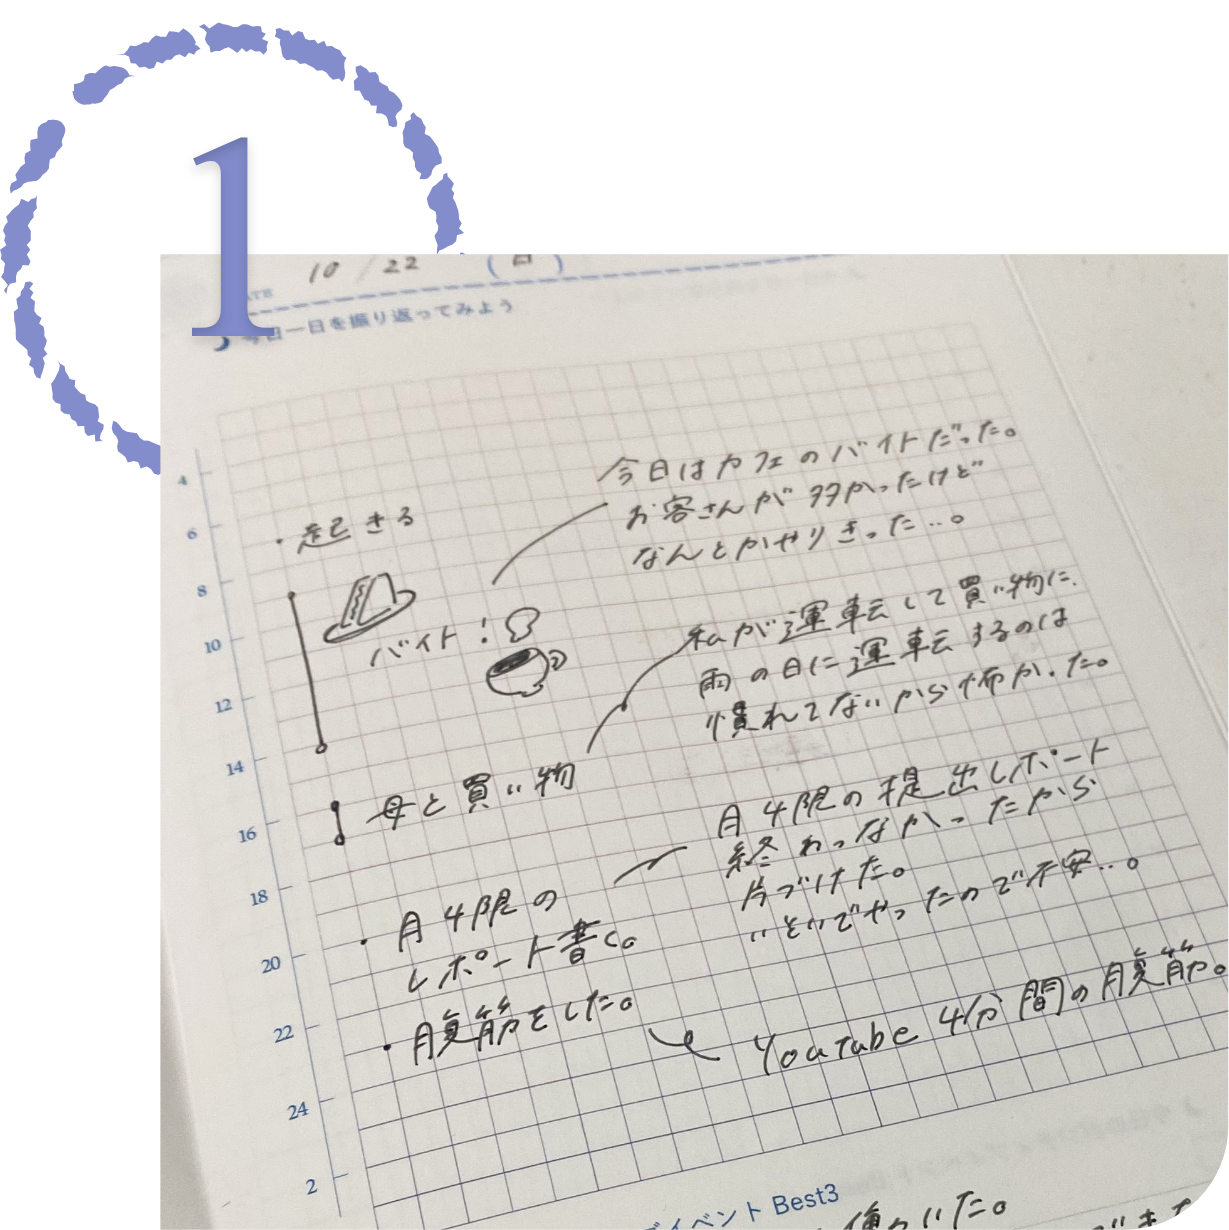 1
10/22 (日)
今日一日を振り返ってみよう
4
6
8
10
12
14
16
18
20
22
24
2
・起きる
バイト!
今日はカフェのバイトだった。
お客さんが多かったけど
なんとかやりきった…。
母と買い物
私が運転して買い物に。
雨の日に運転するのは
慣れてないから怖かった。
・月4限の
レポート書く。
月4限の提出レポート
終わってなかったから
片づけた。
いそいでやったので不安…。
・腹筋をした。
Youtube 4分間の腹筋。
イベント Best3